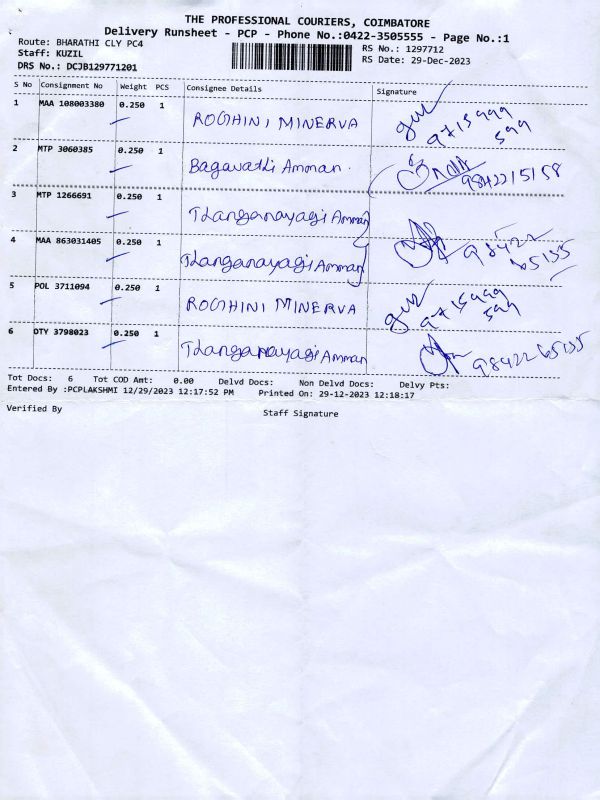 THE PROFESSIONAL COURIERS, COIMBATORE
Delivery Runsheet - PCP - Phone No.:0422-3505555 - Page No.:1
Route: BHARATHI CLY PC4
RS No.: 1297712
Staff: KUZIL
RS Date: 29-Dec-2023
DRS No.: DCJB129771201
S No Consignment No Weight PCS Consignee Details Signature
1 MAA 108003380 0.250 1 ROGHINI MINERVA
2 MTP 3060385 0.250 1 Bagavathi Amman. 9842215158
3 MTP 1266691 0.250 1 Thanganayagi Amman
4 MAA 863031405 0.250 1 Thanganayagi Amman 98422
65135
5 POL 3711094 0.250 1 ROGHINI MINERVA
6 OTY 3798023 0.250 1 Thanganayagi Amman 9842265135
Tot Docs: 6 Tot COD Amt: 0.00 Delvd Docs: Non Delvd Docs: Delvy Pts:
Entered By :PCPLAKSHMI 12/29/2023 12:17:52 PM Printed On: 29-12-2023 12:18:17
Verified By Staff Signature